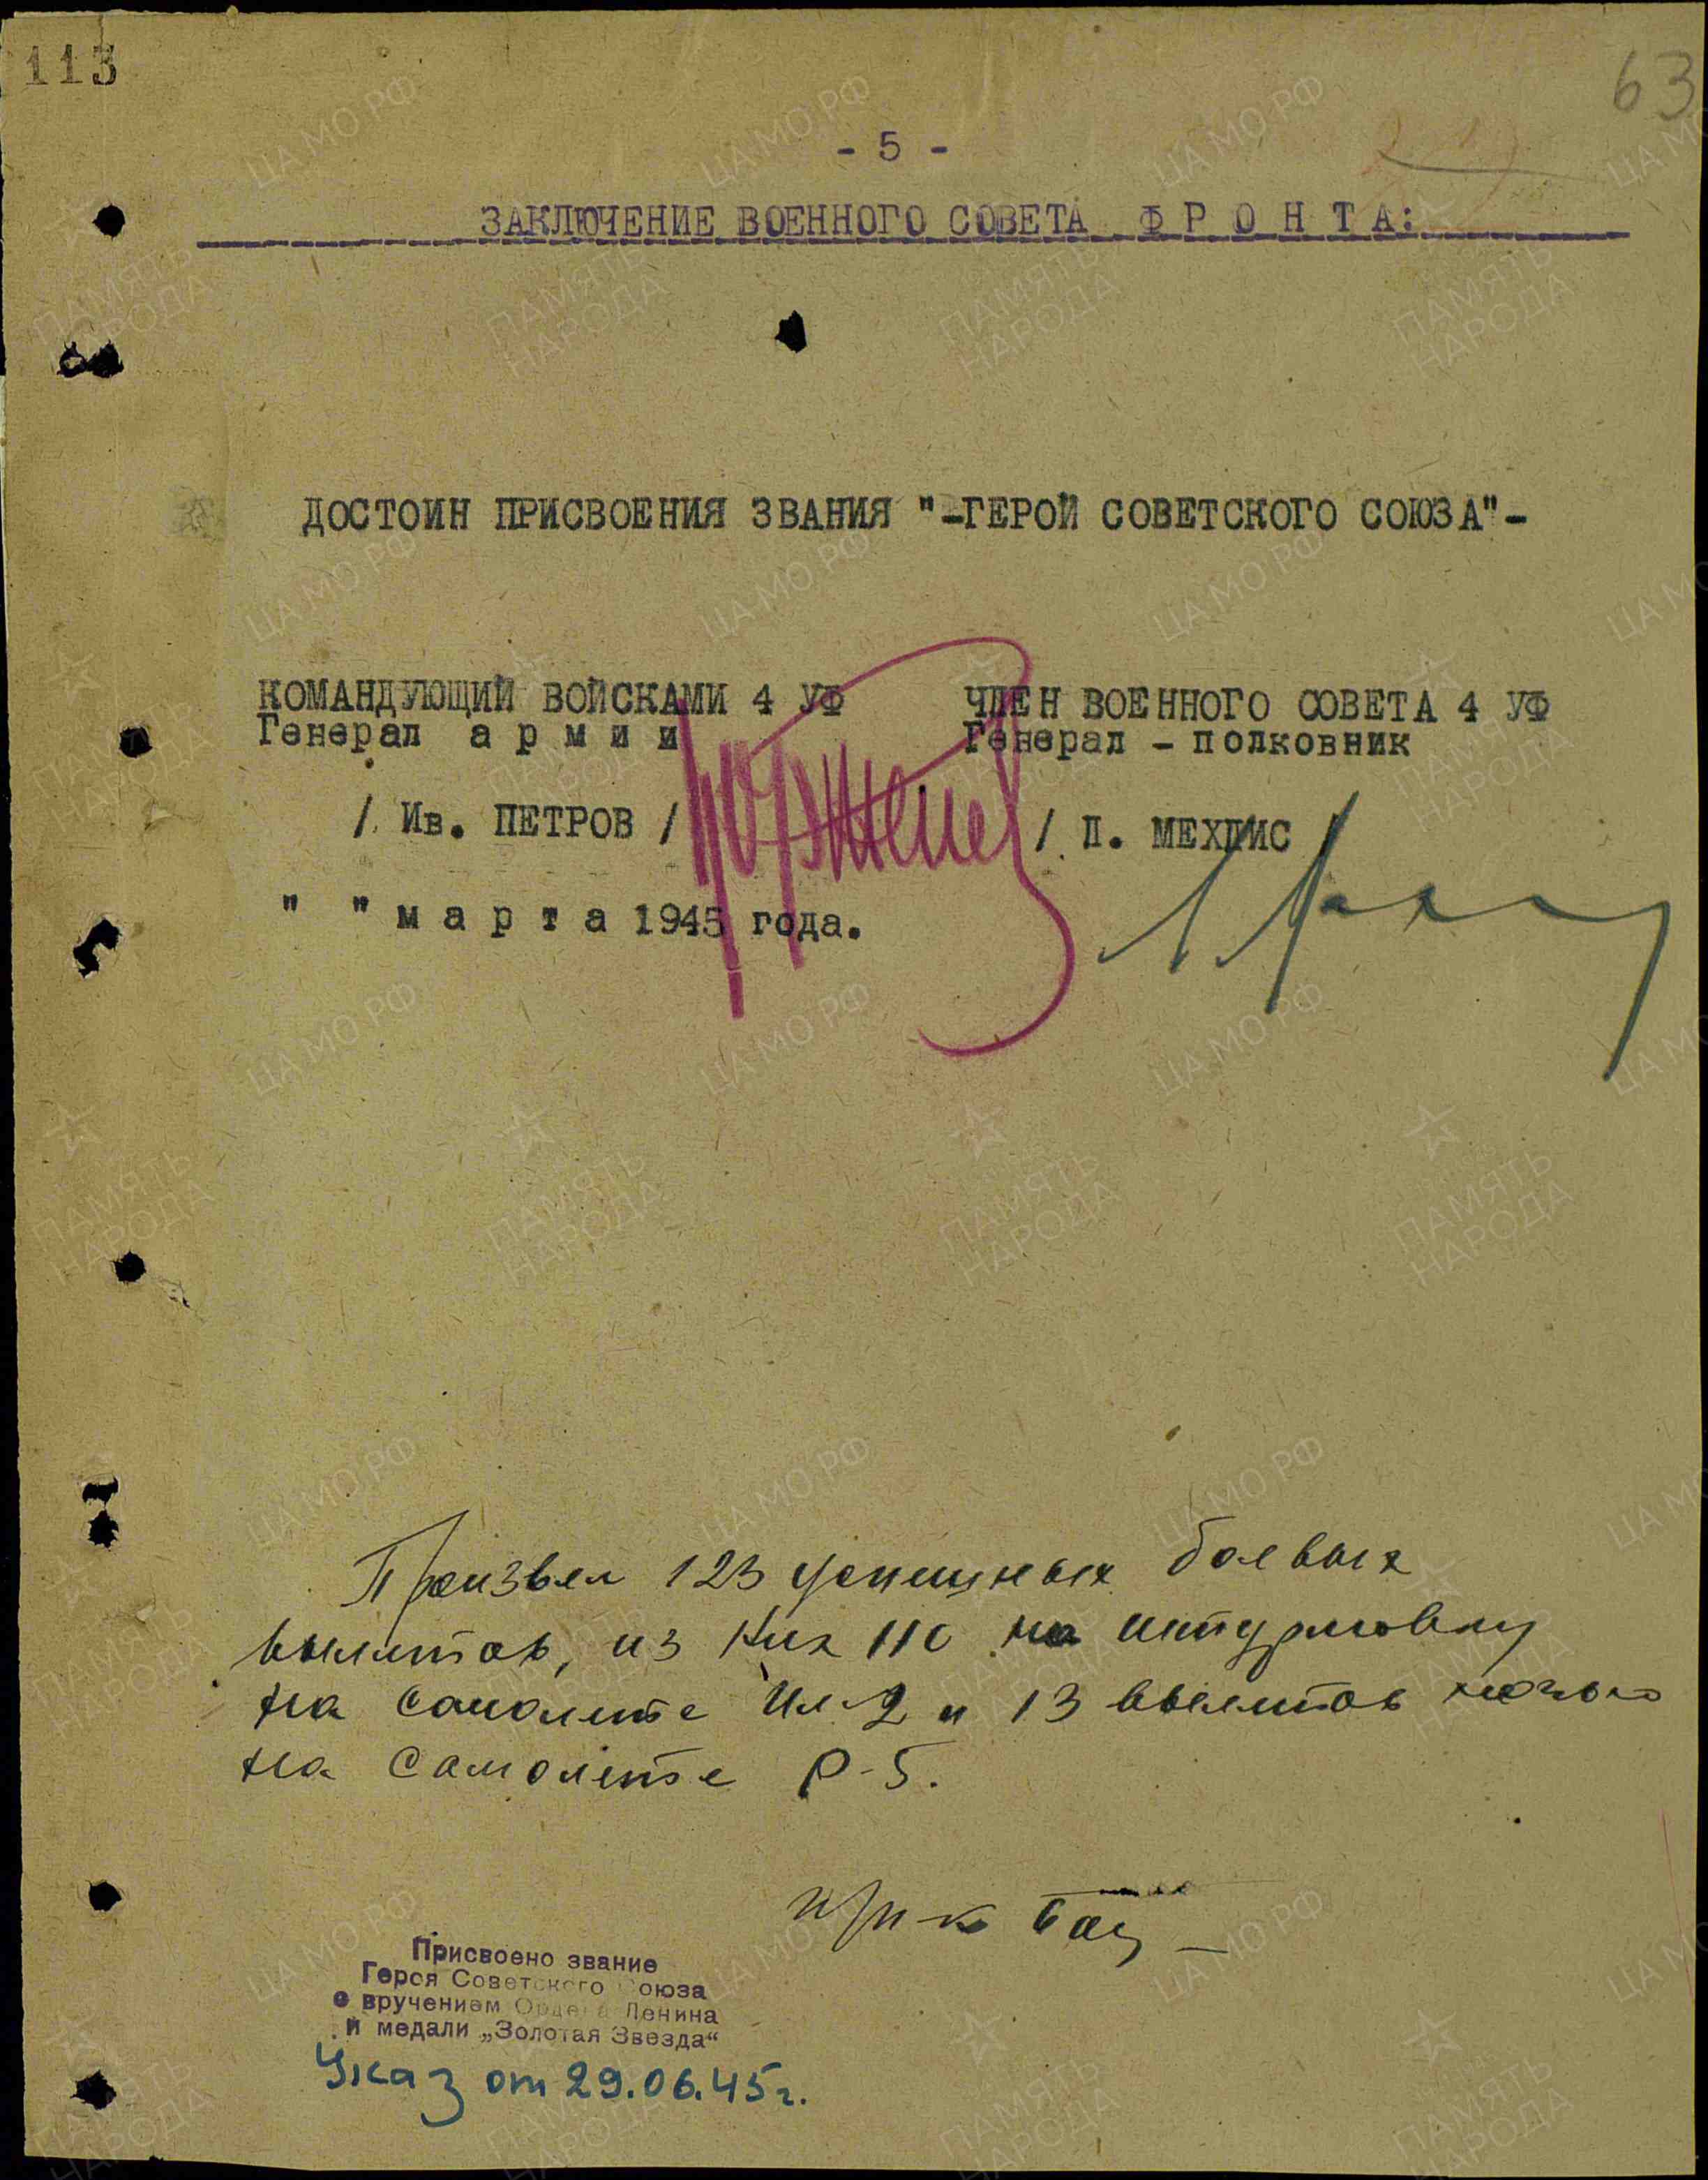 113
63
- 5 -
ЗАКЛЮЧЕНИЕ ВОЕННОГО СОВЕТА Ф Р О Н Т А:
ДОСТОИН ПРИСВОЕНИЯ ЗВАНИЯ "-ГЕРОЙ СОВЕТСКОГО СОЮЗА"-
КОМАНДУЮЩИЙ ВОЙСКАМИ 4 УФ
Генерал а р м и и
/ Ив. ПЕТРОВ /
" " м а р т а 1945 года.
ЧЛЕН ВОЕННОГО СОВЕТА 4 УФ
Генерал - полковник
/ Л. МЕХЛИС /
Произвел 123 успешных боевых
вылетов, из них 110 на штурмовку
на самолете Ил-2 и 13 вылетов ночью
на самолете Р-5.
Присвоено звание
Героя Советского Союза
с вручением Ордена Ленина
и медали „Золотая Звезда“
Указ от 29.06.45г.
ЦА МО РФ
ПАМЯТЬ
НАРОДА